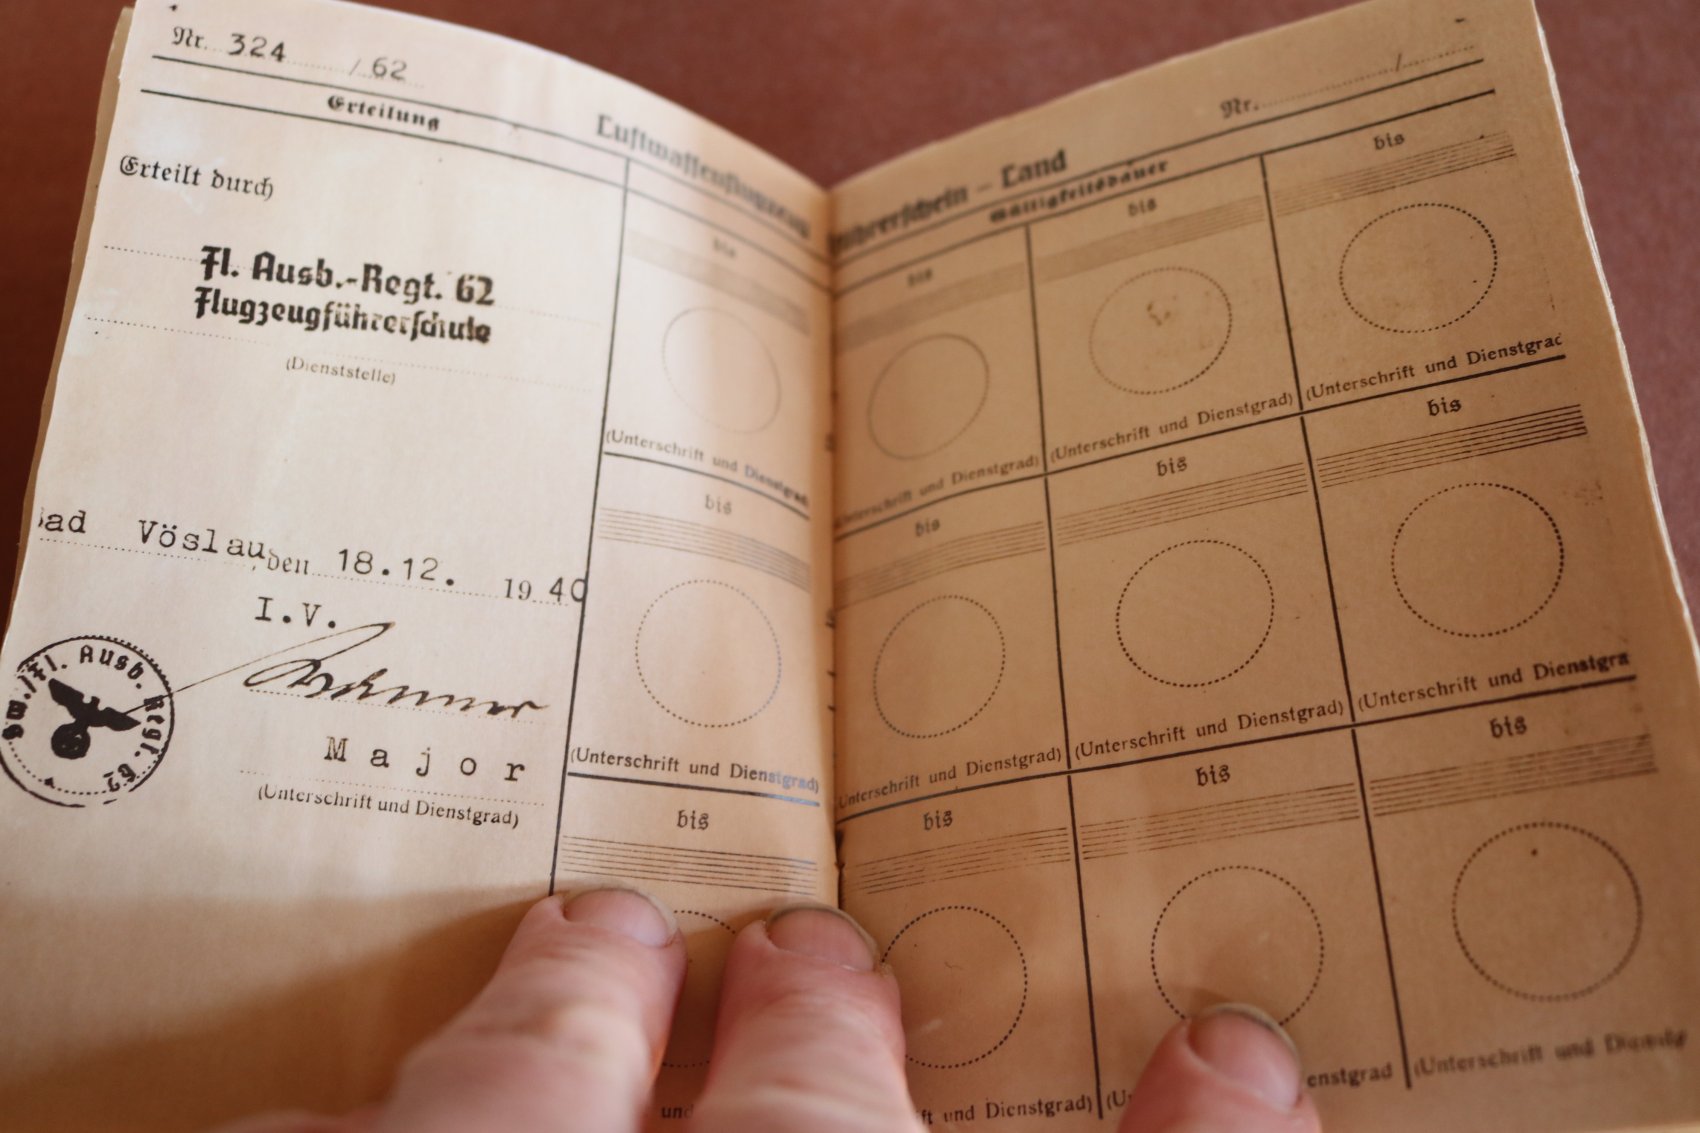 Nr. 324 / 62
Erteilung
Erteilt durch
Fl. Ausb.-Regt. 62
Flugzeugführerschule
(Dienststelle)
Bad Vöslau, den 18.12. 1940
I.V.
Major
(Unterschrift und Dienstgrad)
Sw./Fl. Ausb. Regt. 62
Luftwaffenflugzeug
bis
(Unterschrift und Dienstgrad
bis
(Unterschrift und Dienstgrad)
bis
und
Nr. /
führerschein – Land
Gültigkeitsdauer
bis bis bis
(Unterschrift und Dienstgrad) (Unterschrift und Dienstgrad) (Unterschrift und Dienstgrad
bis bis bis
Unterschrift und Dienstgrad) (Unterschrift und Dienstgrad) (Unterschrift und Dienstgra
bis bis bis
ft und Dienstgrad) (U enstgrad (Unterschrift und